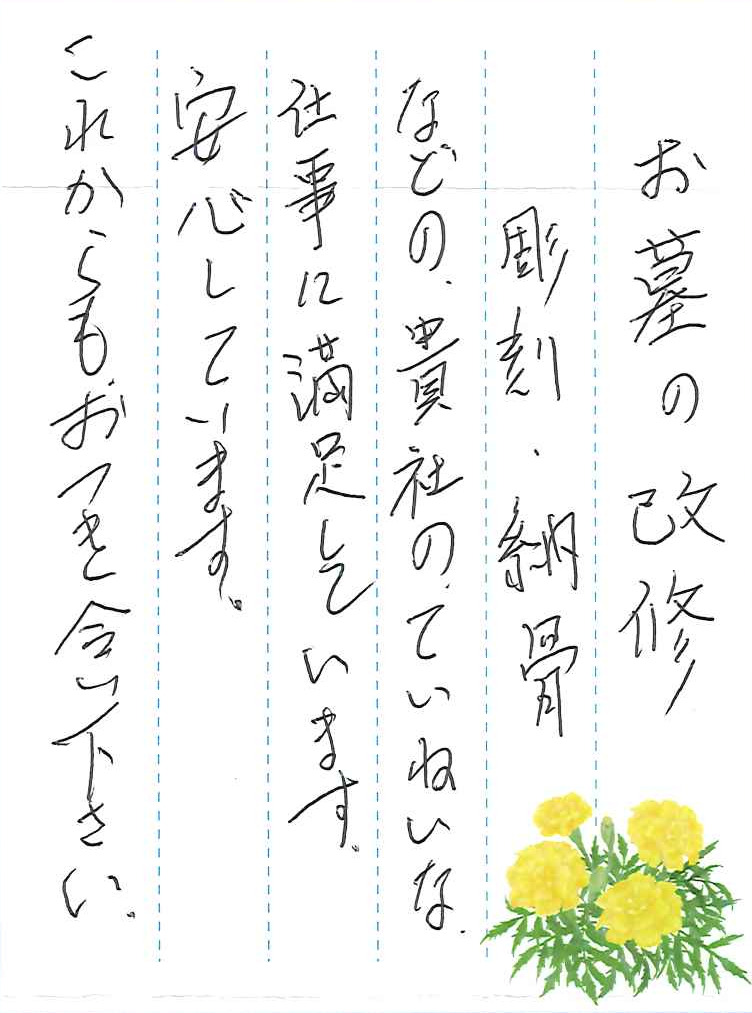 お墓の改修
彫刻・納骨
などの、貴社の、ていねいな、
仕事に満足して います。
安心しています。
これからもおつき合い下さい。